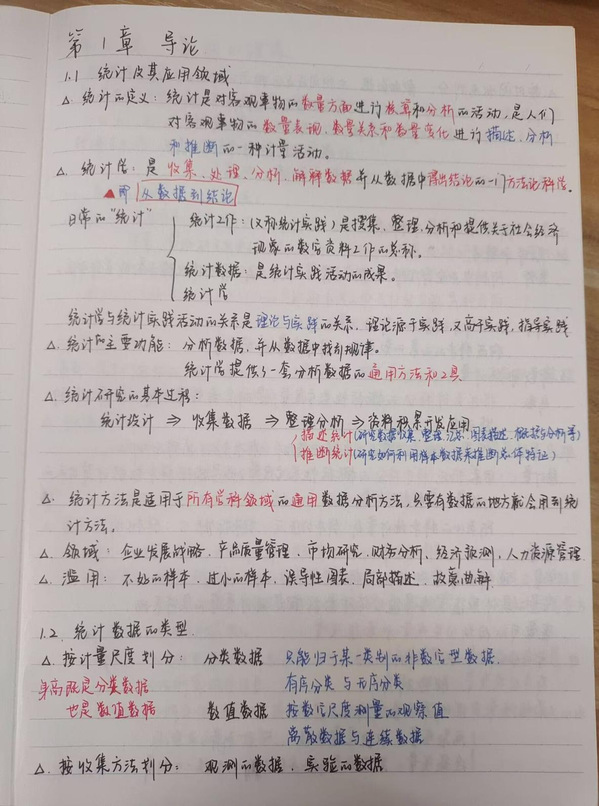 第1章 导论
1.1 统计及其应用领域
△ 统计的定义：统计是对客观事物的数量方面进行核算和分析的活动，是人们
对客观事物的数量表现、数量关系和数量变化进行描述、分析
和推断的一种计量活动。
△ 统计学：是收集、处理、分析、解释数据并从数据中得出结论的一门方法论科学。
▲即 从数据到结论
日常的“统计”
统计工作：（又称统计实践）是搜集、整理、分析和提供关于社会经济
现象的数字资料工作的总称。
统计数据：是统计实践活动的成果。
统计学
统计学与统计实践活动的关系是理论与实践的关系，理论源于实践，又高于实践，指导实践
△ 统计的主要功能：分析数据，并从数据中找到规律。
统计学提供了一套分析数据的通用方法和工具
△ 统计研究的基本过程：
统计设计 ⇒ 收集数据 ⇒ 整理分析 ⇒ 资料积累开发应用
描述统计（研究数据收集、整理、汇总、图表描述、概括与分析等）
推断统计（研究如何利用样本数据来推断总体特征）
△ 统计方法是适用于所有学科领域的通用数据分析方法，只要有数据的地方就会用到统
计方法。
△ 领域：企业发展战略、产品质量管理、市场研究、财务分析、经济预测、人力资源管理
△ 滥用：不好的样本、过小的样本、误导性图表、局部描述、故意曲解
1.2 统计数据的类型
△ 按计量尺度划分：分类数据 只能归于某一类别的非数字型数据.
身高既是分类数据 有序分类与无序分类
也是数值数据 数值数据 按数字尺度测量的观察值
离散数据与连续数据
△ 按收集方法划分：观测的数据、实验的数据